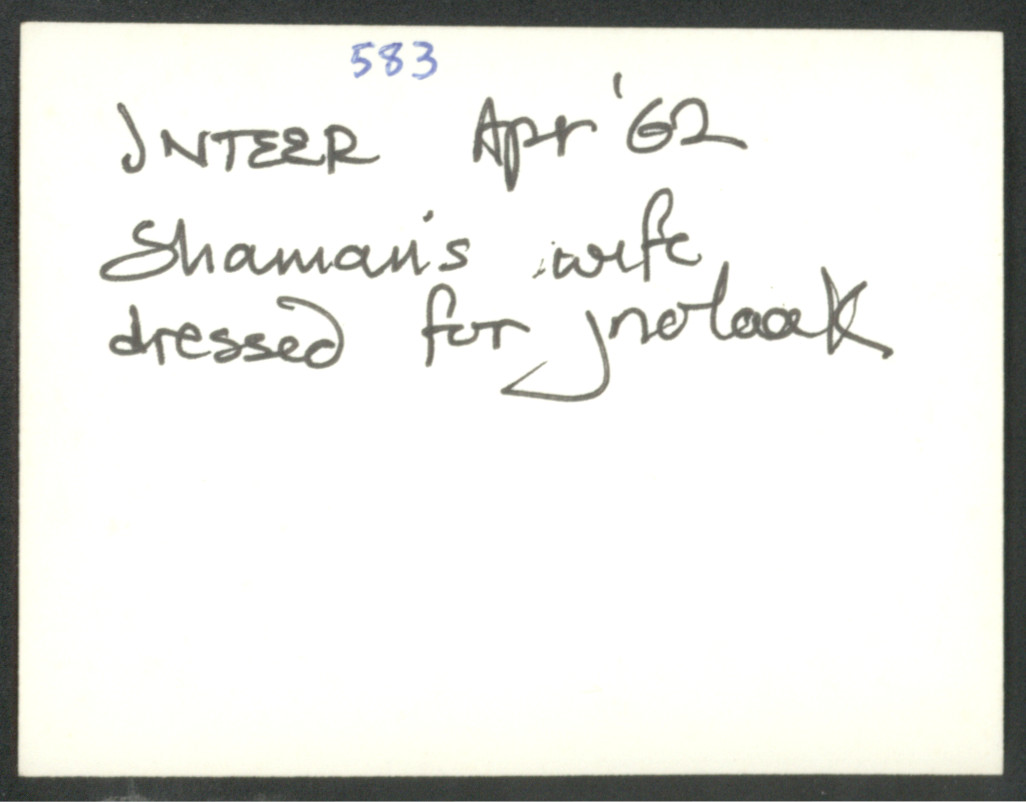 583
JNTEER Apr '62
Shaman's wife
dressed for jnolaak